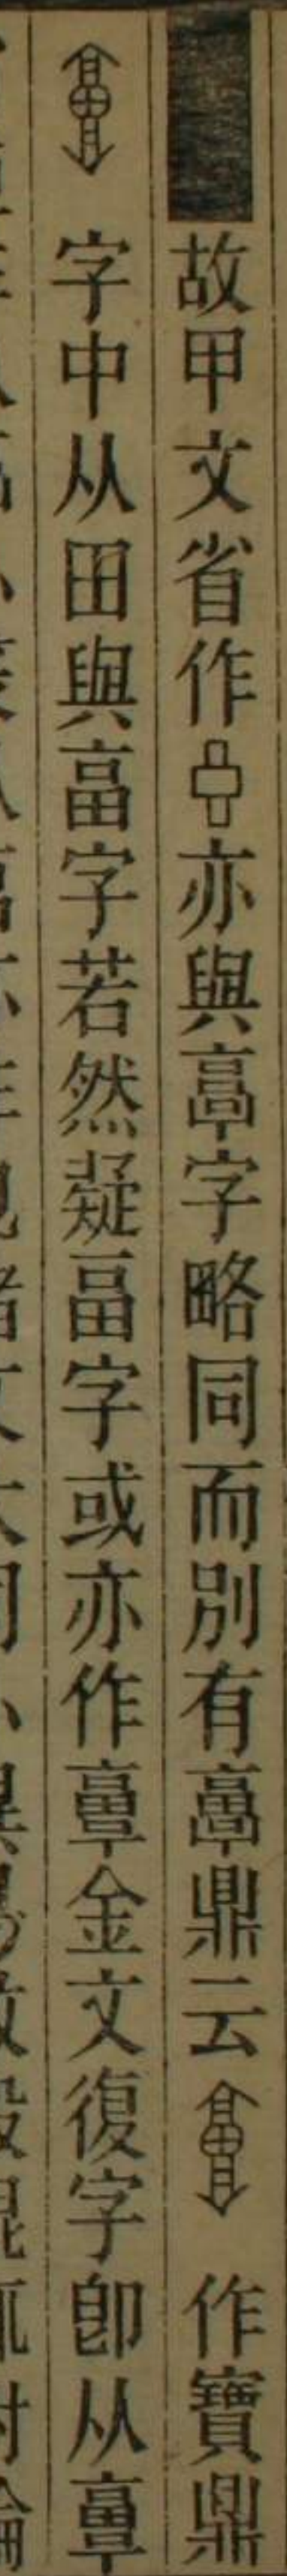 故甲文省作亦與𩫏字略同而別有鼎云作寶鼎
字中从田與畗字若然疑畐字或亦作金文復字卽从